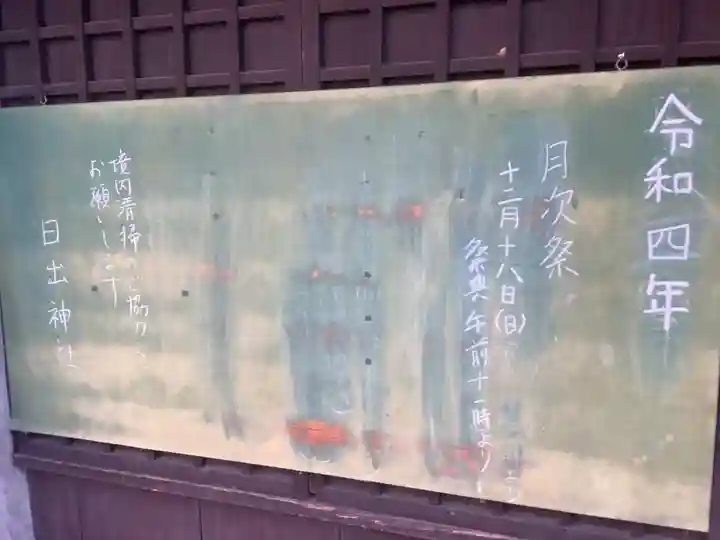 令和四年
月次祭
十二月十八日(日)
祭典午前十一時より
境内清掃のご協力を
お願いします
日出神社